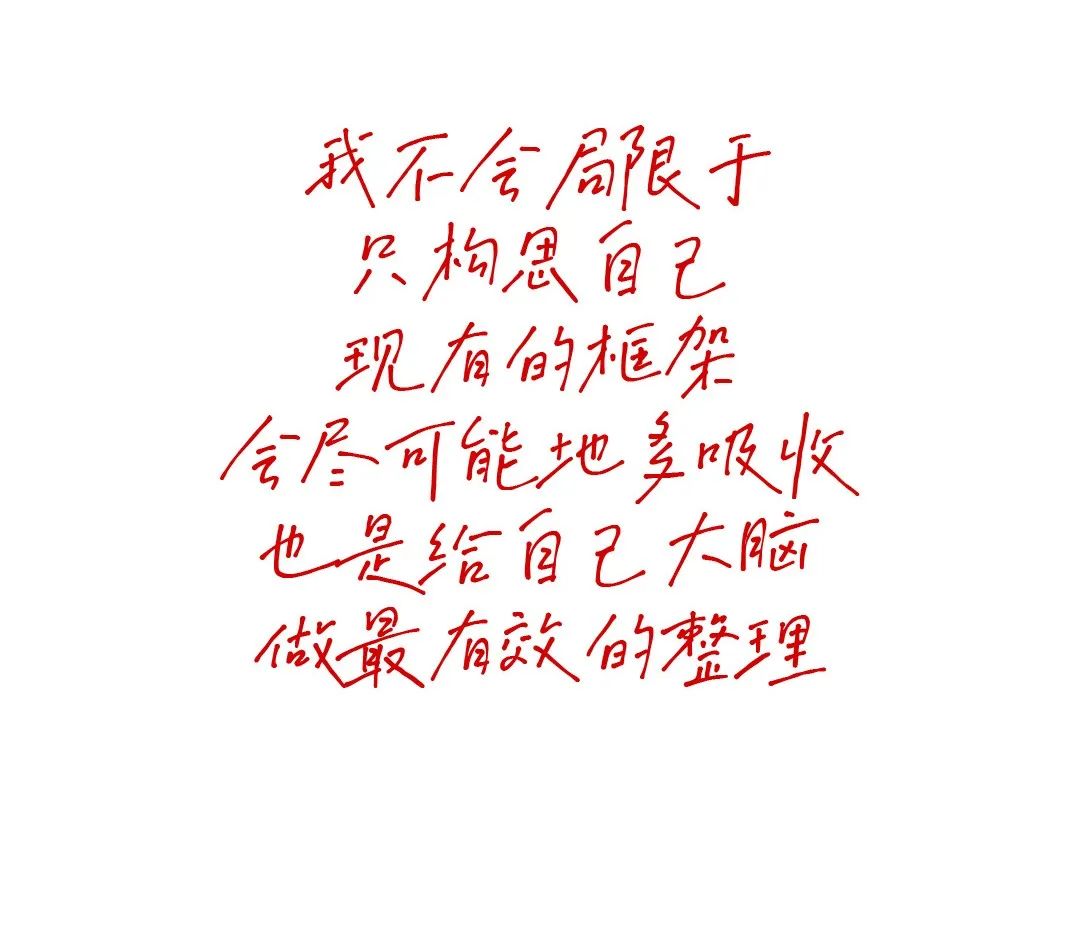 我不会局限于
只构思自己
现有的框架
会尽可能地多吸收
也是给自己大脑
做最有效的整理